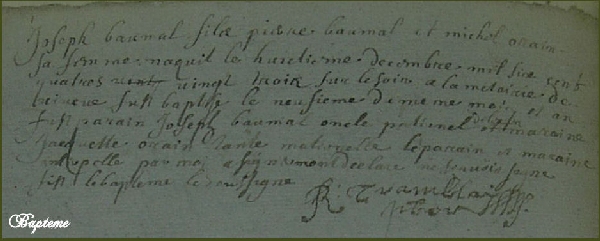 Joseph baumal filx pierre baumal et michel
sa femme naquit le huictieme decembre mil six cents
quatres vingt trois sur le soir a la metairie de
fust baptise le neufieme du meme mois et an
fust parain Joseph baumal oncle paternel et maraine
Jacquette tante maternelle le parain et maraine
par moy a signer mont declare ne scavoir signe
fist le bapteme le soussigne
Bapteme